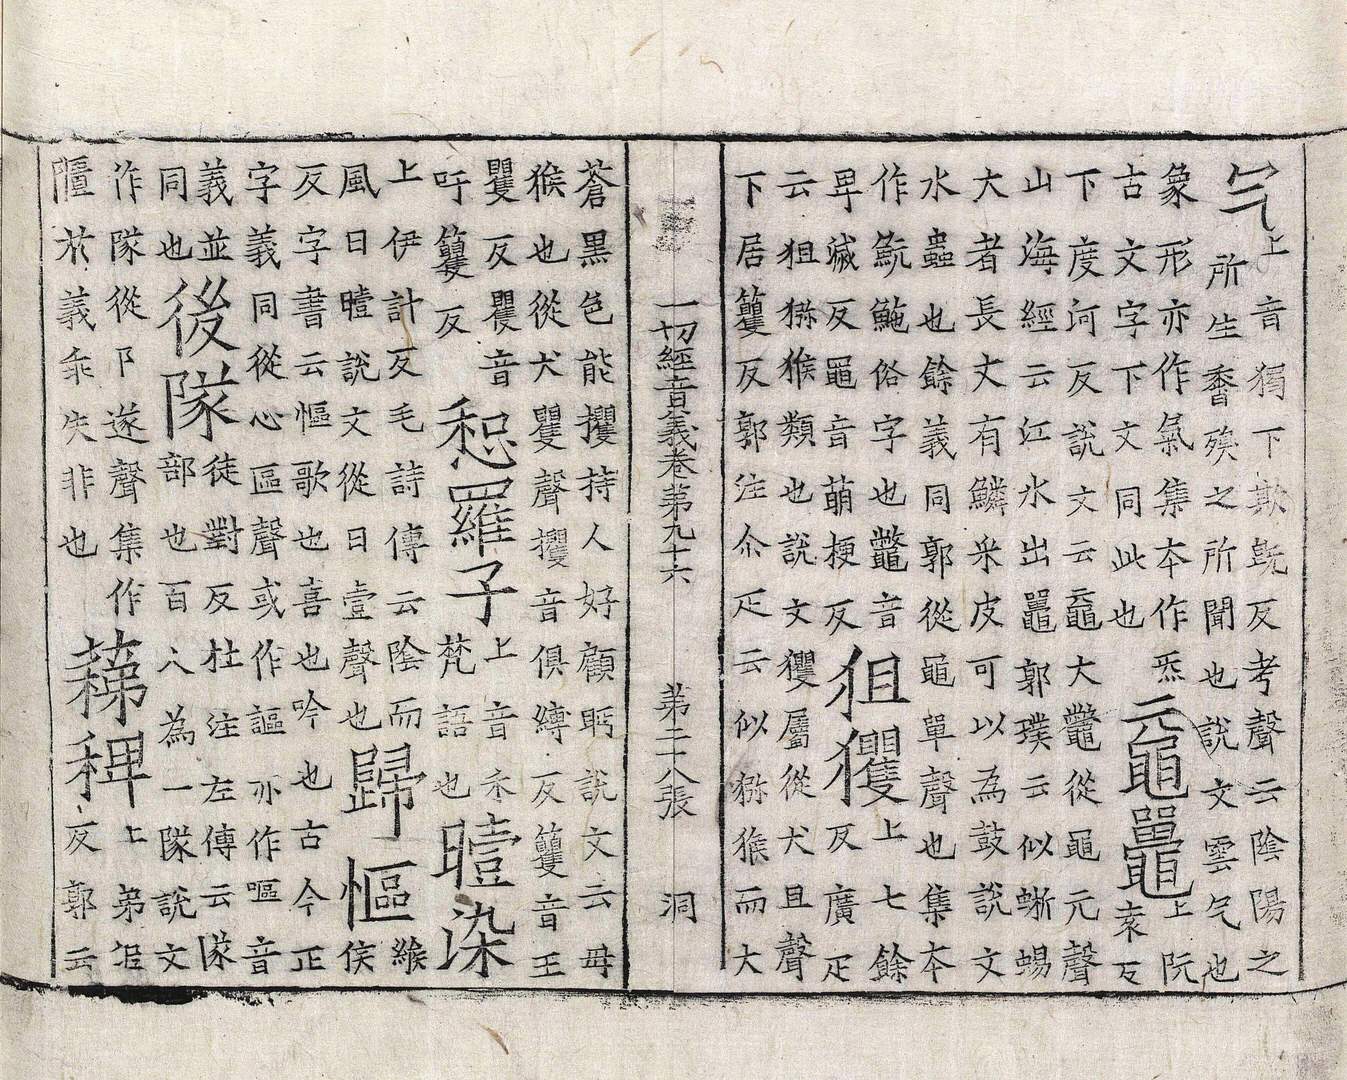 气上音獨下欺旣反考聲云陰陽之
所生奮殘之所聞也説文雲气也
象形亦作氣集本作炁
古文字下文同此也
黿鼉上阮
袁反
下度河反説文云黿大鼈從黽元聲
山海經云江水出鼉郭璞云似蜥蜴
大者長丈有鱗采皮可以為鼓説文
水蟲也餘義同郭從黽單聲也集本
作魭俗字也鼈音
卑滅反黽音萌梗反
狙玃上七餘
反廣疋
云狙獼猴類也説文玃屬從犬且聲
下居籰反郭注尒疋云似獼猴而大
一切經音義卷第九十六 第二十八張 洞
蒼黑色能攫持人好顧眄説文云母
猴也從犬矍聲攫音俱縛反籰音王
矍反矍音
吁籰反
惒羅子上音禾
梵語也
曀染
上伊計反毛詩傳云陰而
風曰曀説文從日壹聲也
歸慪緱
侯
反字書云慪歌也喜也吟也古今正
字義同從心區聲或作謳亦作嘔音
義並
同也
後隊徒對反杜注左傳云隊
部也百人為一隊説文
作隊從阝遂聲集作
於義乖失非也
蕛稗上弟泥
反郭云